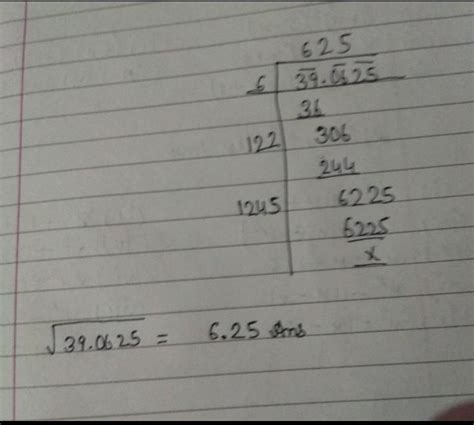 625
6 39.0625
36
122 306
244
1245 6225
6225
x
√39.0625 = 6.25 Ans